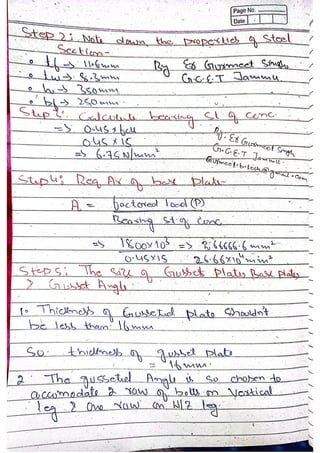 Page No.
Date
Step 2: Note down the properties of Steel
Section-
• tf → 11.6mm By Er Gurmeet Singh
• tw → 8.3mm G.C.E.T Jammu
• h → 350mm
• bf → 250mm
Step 3: Calculate bearing st of conc
=> 0.45 x fck
0.45 x 15 By Er Gurmeet Singh
=> 6.75 N/mm² G.C.E.T Jammu
Step 4: Req Ar of base plate-
A = factored load (P)
Bearing st. of conc
=> 1800x10³ => 2,66666.6 mm²
0.45x15 26.66x10⁴ mm²
Step 5: The size of Gusset Plates Base plates
& Gusset Angle
1. Thickness of Gusseted plate shouldn't
be less than 16mm
So thickness of gusset plate
= 16mm.
2. The gusseted Angle is so chosen to
accomodate 2 row of bolts on Vertical
leg & one row on H/Z leg.